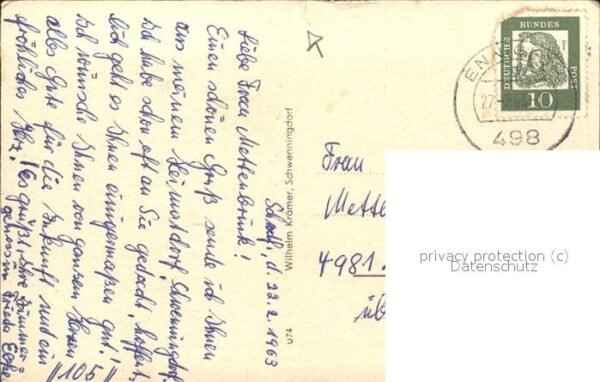 Schwdf., d. 22.2.1963
Liebe Frau Mettenbrink!
Einen schönen Gruß sende ich Ihnen
aus meinem Heimatdorf, Schwenningdorf.
Ich habe schon oft an Sie gedacht, hoffent-
lich geht es Ihnen einigermaßen gut!
Ich wünsche Ihnen von ganzem Herzen
alles Gute für die Zukunft und ein
fröhliches Herz! Es grüßt Ihre Zimmer-
genossin Frieda
"105"
Wilhelm Krämer, Schwenningdorf
u74
Frau
Mette
4981
üb
DEUTSCHE
BUNDES
POST
10
EN
27
498
privacy protection (c)
Datenschutz